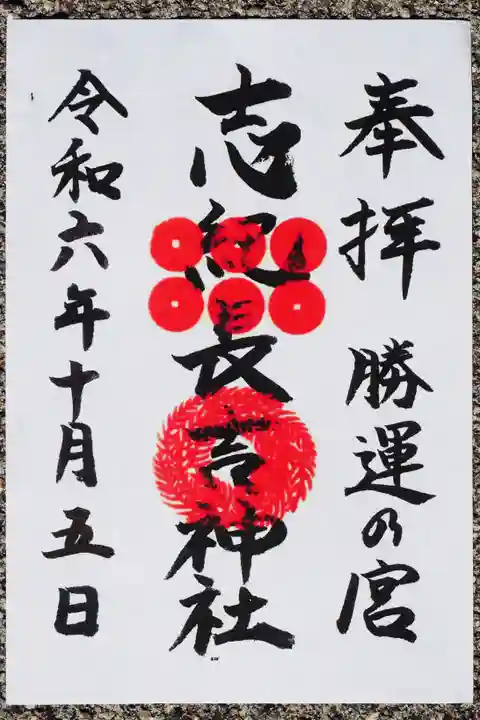 奉拝 勝運の宮
志紀長吉神社
令和六年十月五日